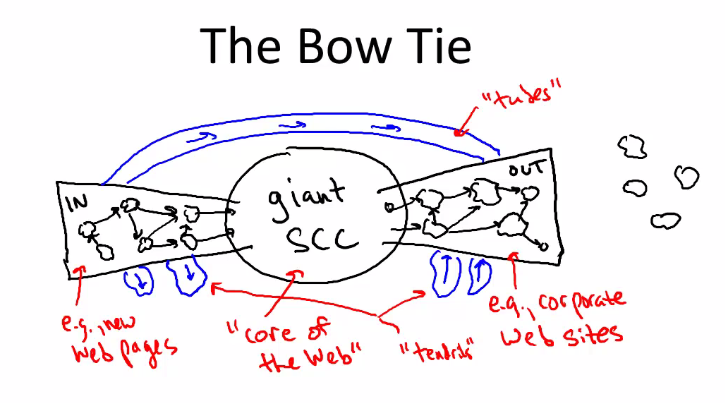 The Bow Tie
"tubes"
IN
giant
SCC
OUT
e.g., new
web pages
"core of
the Web"
"tendrils"
e.g., corporate
web sites